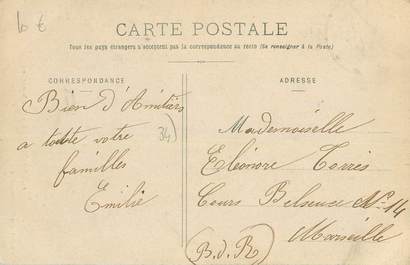 10 €
CARTE POSTALE
Tous les pays étrangers n'acceptent pas la correspondance au recto (Se renseigner à la Poste)
CORRESPONDANCE
Bien d'Amitiés
a toute votre
familles
Emilie
34)
ADRESSE
Mademoiselle
Eléonore Torrès
Cours Belsunce No 14
Marseille
(B.d.R)